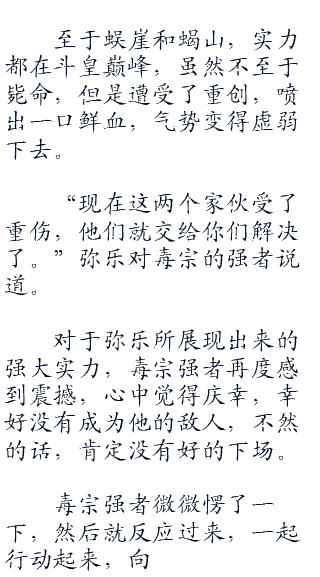 至于蜈崖和蝎山，实力
都在斗皇巅峰，虽然不至于
毙命，但是遭受了重创，喷
出一口鲜血，气势变得虚弱
下去。
“现在这两个家伙受了
重伤，他们就交给你们解决
了。”弥乐对毒宗的强者说
道。
对于弥乐所展现出来的
强大实力，毒宗强者再度感
到震撼，心中觉得庆幸，幸
好没有成为他的敌人，不然
的话，肯定没有好的下场。
毒宗强者微微愣了一
下，然后就反应过来，一起
行动起来，向